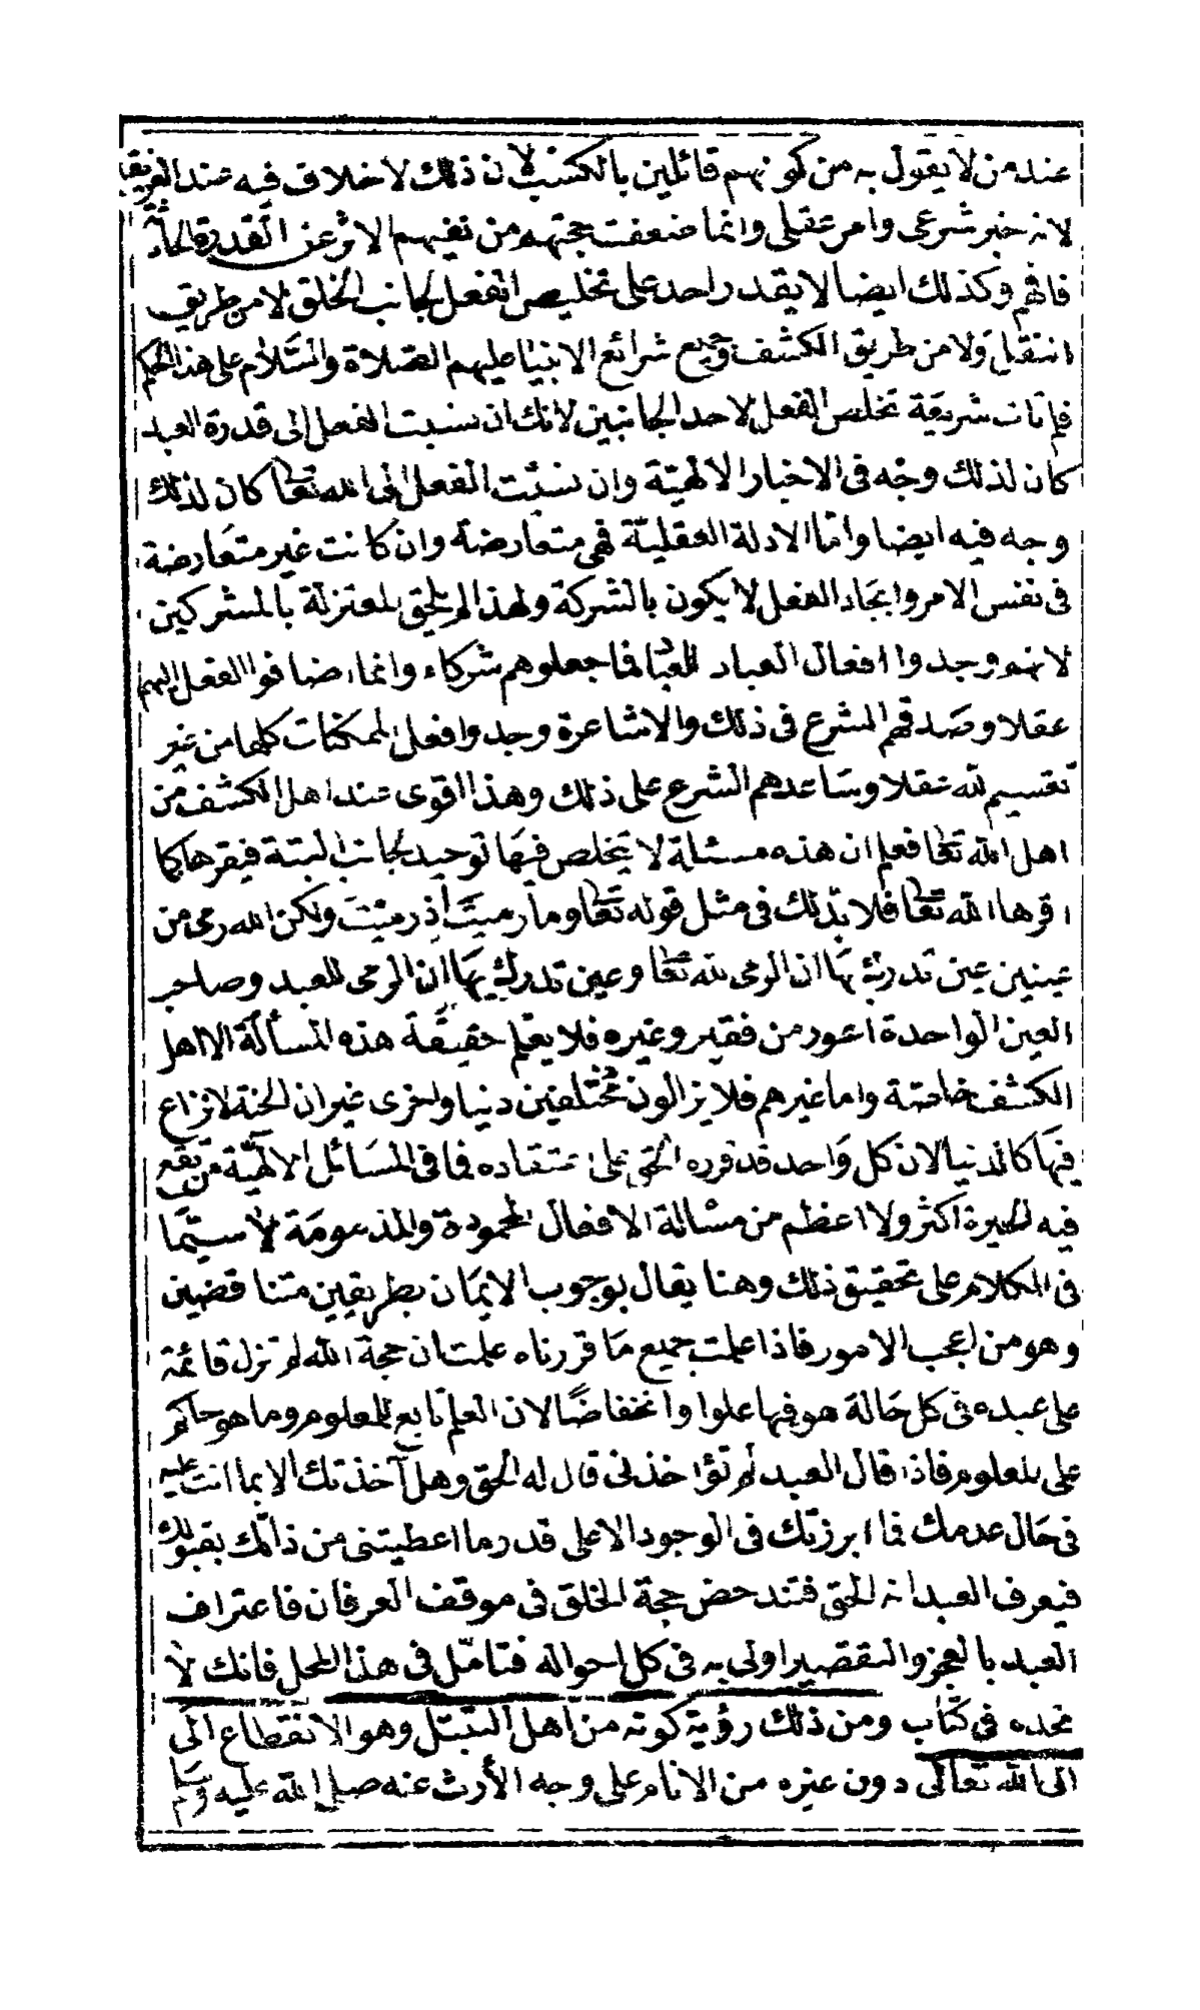 عند من لا يقول به من كونهم قائلين بالكسب لان ذلك لا خلاف فيه عند الفريقين
لانه خبر شرعى وامر عقلى وانما ضعفت حجتهم من نفيهم الاثر عن القدرة الحادثة
فافهم وكذلك ايضا لا يقدر احد على تخليص الفعل لجانب الخلق لا من طريق
انتقل ولا من طريق الكشف وجميع شرائع الانبيا عليهم الصلاة والسلام على هذا الحكم
فما تات شريعة تخلص الفعل لاحد الجانبين لانك ان نسبت الفعل الى قدرة العبد
كان لذلك وجه فى الاخبار الالهية وان نسبت الفعل الى الله تعا كان لذلك
وجه فيه ايضا واما الادلة العقلية فهى متعارضة وان كانت غير متعارضة
فى نفس الامر وايجاد الفعل لا يكون بالشركة ولهذا لم يلحق المعتزلة بالمشركين
لانهم وجدوا افعال العباد للعباد فما جعلوهم شركاء وانما اضافوا الفعل اليهم
عقلا وصدقهم الشرع فى ذلك والاشاعرة وجدوا فعل الممكنات كلها من غير
تقسيم لله عقلا وساعدهم الشرع على ذلك وهذا اقوى عند اهل الكشف من
اهل الله تعا فعلم ان هذه مسئلة لا يتخلص فيها توحيد لجانب البتة فيقرها كما
اقرها الله تعا فلا بد لك فى مثل قوله تعا وما رميت اذ رميت ولكن الله رمى من
عينين عين تدرك بها ان الرمى لله تعا وعين تدرك بها ان الرمى للعبد وصاحب
العين الواحدة اعور من فقير وغيره فلا يعلم حقيقة هذه المسألة الا اهل
الكشف خاصة واما غيرهم فلا يزالون مختلفين دنيا واخرى غير ان الجنة لا نزاع
فيها كالدنيا لان كل واحد قد قرره الحق على اعتقاده فما فى المسائل الالهية من تقع
فيه الحيرة اكثر ولا اعظم من مسالة الافعال المحمودة والمذمومة لا سيما
فى الكلام على تحقيق ذلك وهنا يقال بوجوب الايمان بطريقين متناقضين
وهو من اعجب الامور فاذا علمت جميع ما قررناه علمت ان حجة الله لم تزل قائمة
على عبده فى كل حالة هو فيها علوا وانخفاضا لان العلم تابع للمعلوم وما هو حاكم
على المعلوم فاذا قال العبد لم تؤاخذنى قال له الحق وهل آخذتك الا بما انت عليه
فى حال عدمك فما ابرزتك فى الوجود الا على قدر ما اعطيتنى من ذاتك بقبولك
فيعرف العبد انه الحق فتندحض حجة الخلق فى موقف العرفان فاعتراف
العبد بالعجز والتقصير اولى به فى كل احواله فتامل فى هذا المحل فانك لا
تجده فى كتاب ومن ذلك رؤية كونه من اهل التبتل وهو الانقطاع الى
الى الله تعالى دون غيره من الانام على وجه الأرث عنه صلى الله عليه وسلم